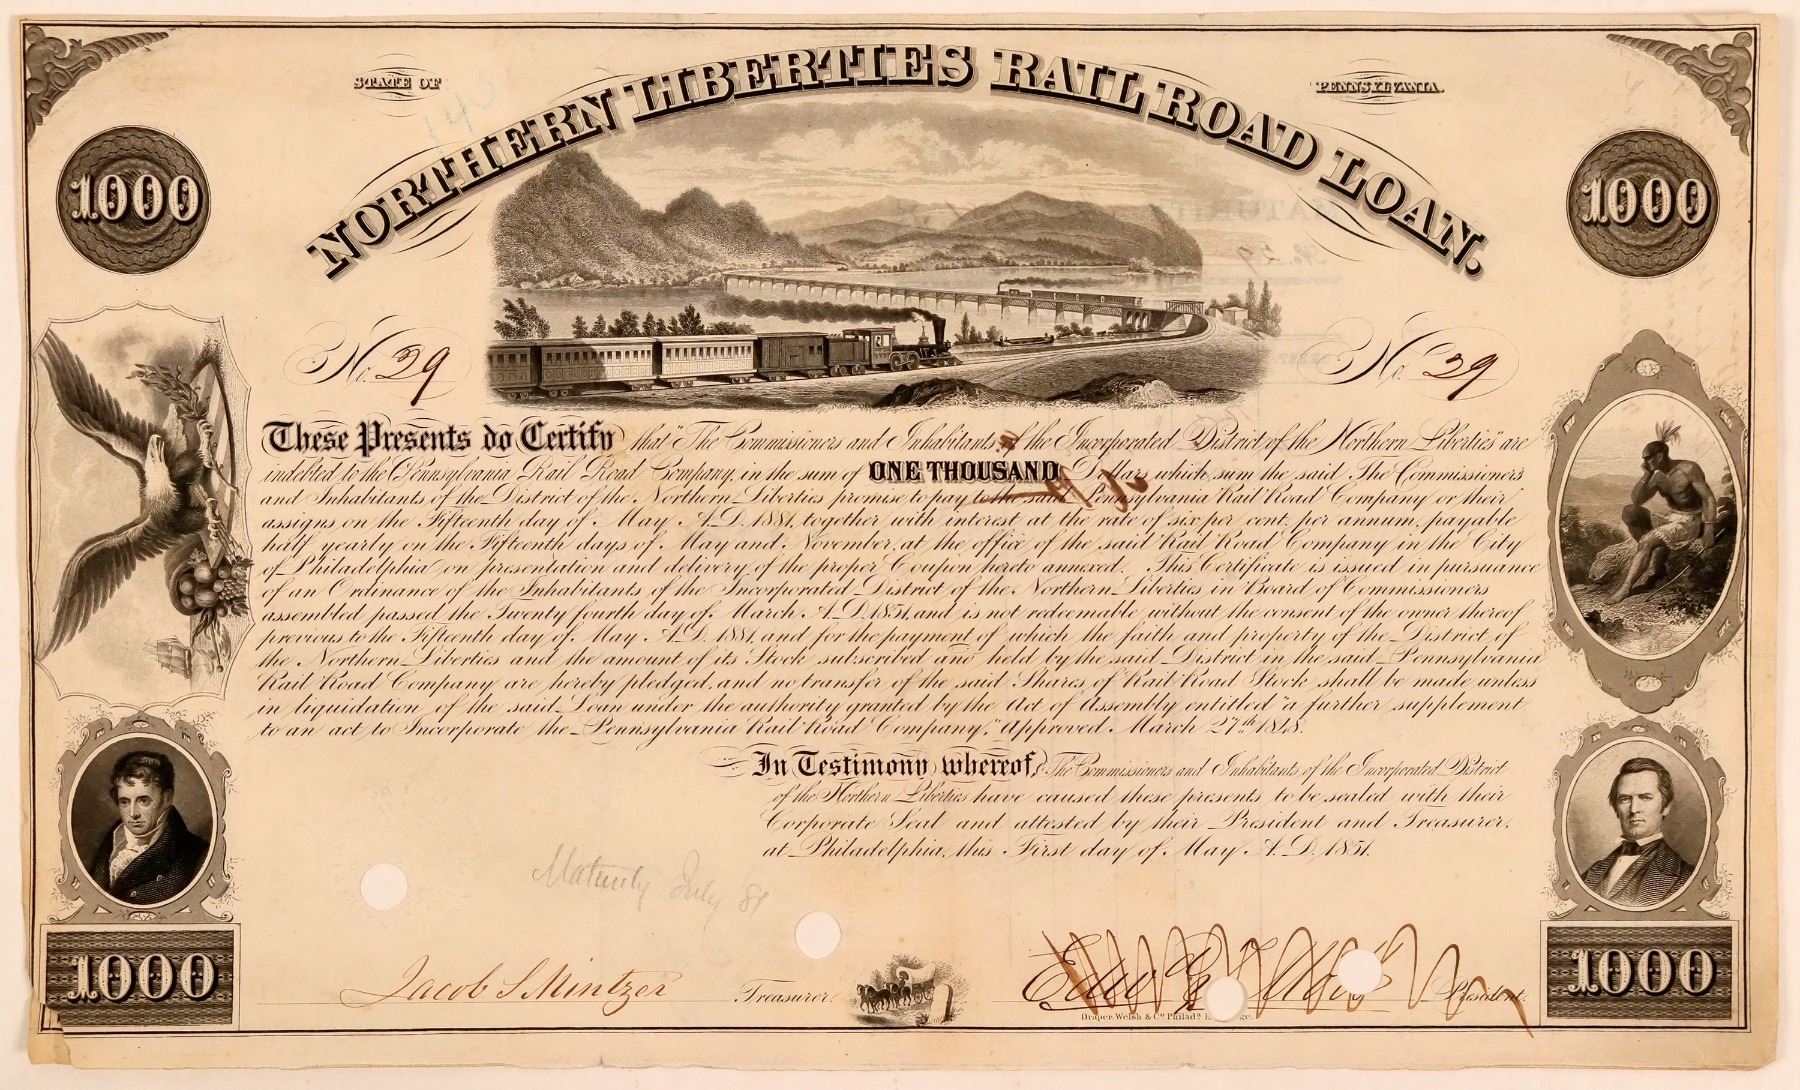 STATE OF
PENNSYLVANIA.
NORTHERN LIBERTIES RAIL ROAD LOAN.
1000
1000
No. 29
No. 29
These Presents do Certify that "The Commissioners and Inhabitants of the Incorporated District of the Northern Liberties" are
indebted to the Pennsylvania Rail Road Company, in the sum of ONE THOUSAND Dollars, which sum the said The Commissioners
and Inhabitants of the District of the Northern Liberties promise to pay to the said Pennsylvania Rail Road Company or their
assigns on the Fifteenth day of May A.D. 1881, together with interest at the rate of six per cent. per annum, payable
half yearly on the Fifteenth days of May and November, at the office of the said Rail Road Company in the City
of Philadelphia on presentation and delivery of the proper Coupon hereto annexed. This Certificate is issued in pursuance
of an Ordinance of the Inhabitants of the Incorporated District of the Northern Liberties in Board of Commissioners
assembled passed the Twenty fourth day of March A.D. 1851, and is not redeemable without the consent of the owner thereof
previous to the Fifteenth day of May A.D. 1881, and for the payment of which the faith and property of the District of
the Northern Liberties and the amount of its Stock subscribed and held by the said District in the said Pennsylvania
Rail Road Company are hereby pledged, and no transfer of the said Shares of Rail Road Stock shall be made unless
in liquidation of the said Loan under the authority granted by the Act of Assembly entitled "a further supplement
to an act to Incorporate the Pennsylvania Rail Road Company," Approved March 27th 1848.
In Testimony whereof, The Commissioners and Inhabitants of the Incorporated District
of the Northern Liberties have caused these presents to be sealed with their
Corporate Seal and attested by their President and Treasurer,
at Philadelphia, this First day of May A.D. 1851.
Maturity July 81
Jacob S Mintzer Treasurer.
President.
Draper, Welsh & Co. Philada.
1000
1000